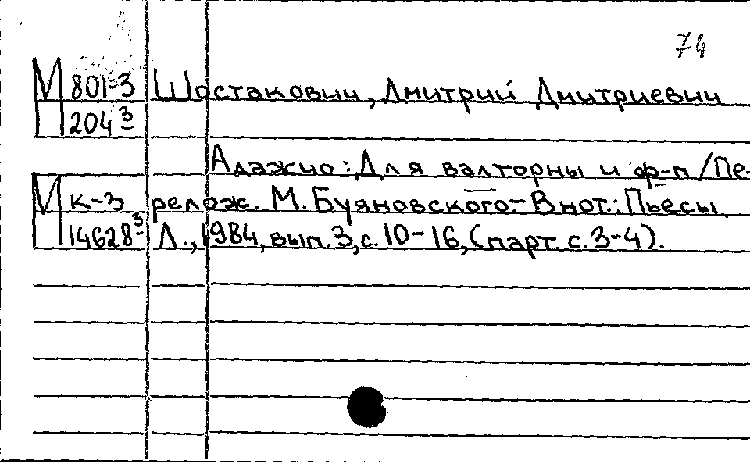 74
М 801-3 Шостакович, Дмитрий Дмитриевич
П 204³
Адажио: Для валторны и ф-п /Пе-
М к-3 релож. М. Буяновского.- В нот.: Пьесы
14628³ Л., 1984, вып. 3, с. 10-16, (парт. с. 3-4).